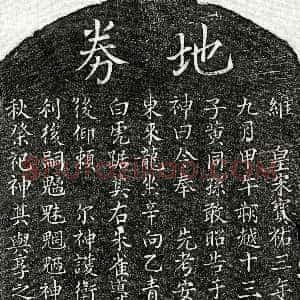 地券
維皇宋寶祐三年
九月甲午朔越十三
子黃同孫敢昭告于
神曰公奉先考安
東來龍坐辛向乙青
白虎踞其右朱雀導
後仰賴尔神護衛
秋祭祀神其與享之